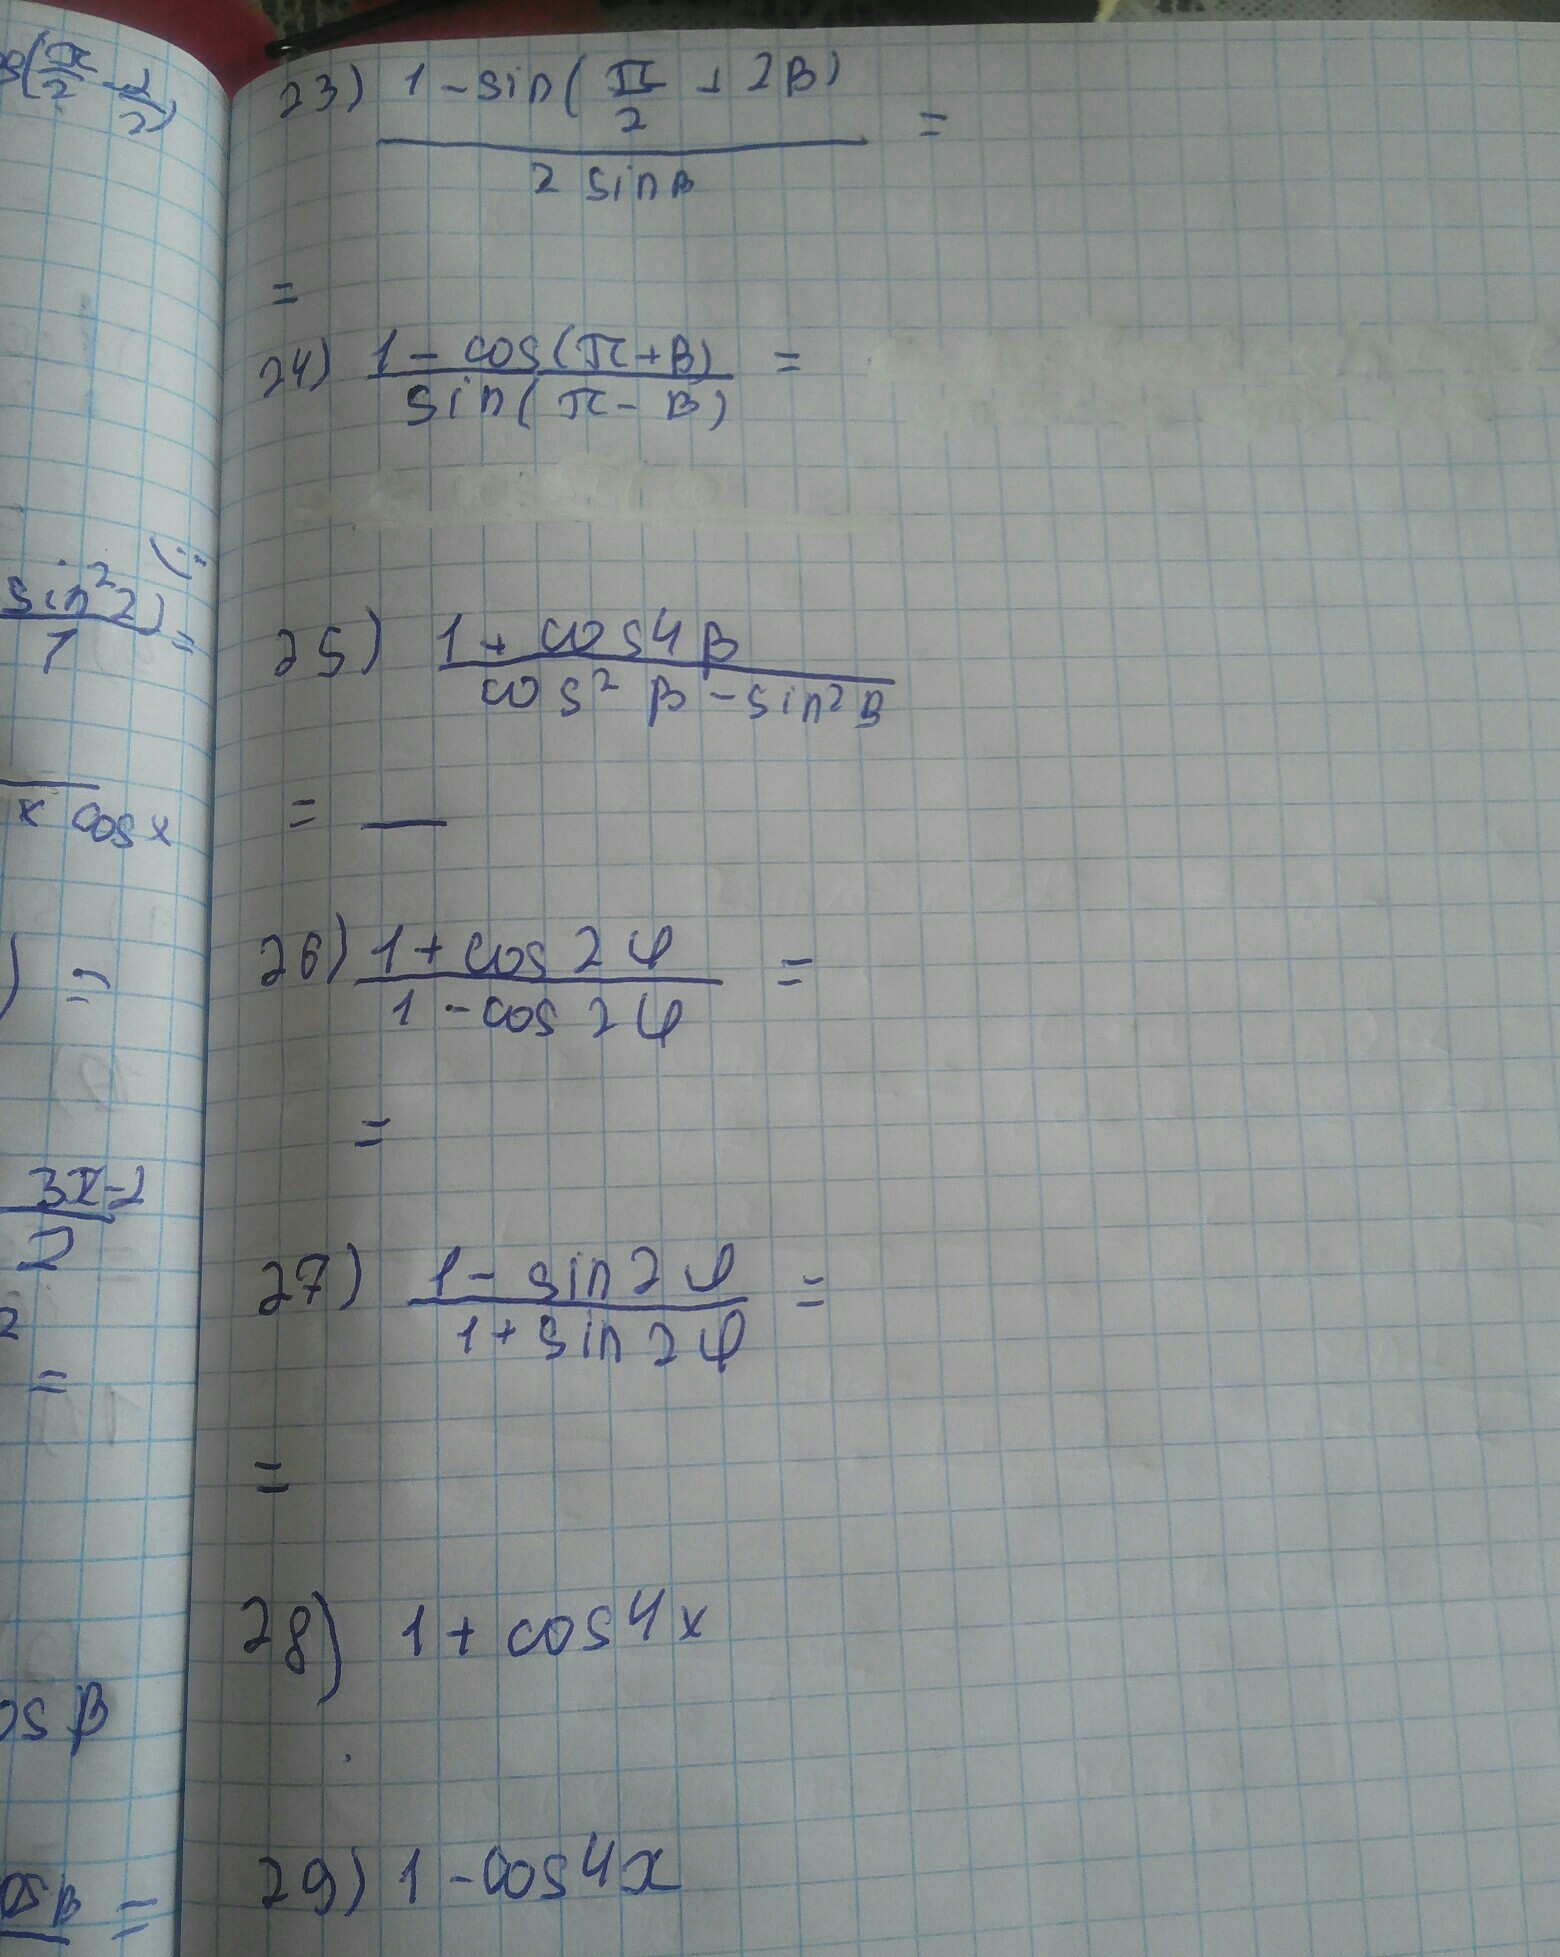 os(π/2 - 2/2)
sin²2) =
1
x cos x
) =
3π-2
2
2
=
os β
os β =
23) 1 - sin( π/2 + 2β)
2 sin β
=
=
24) 1 - cos(π + β) =
sin( π - β)
25) 1 + cos 4 β
cos² β - sin² β
= —
26) 1 + cos 2 φ =
1 - cos 2 φ
=
27) 1 - sin 2 φ =
1 + sin 2 φ
=
28) 1 + cos 4x
29) 1 - cos 4x